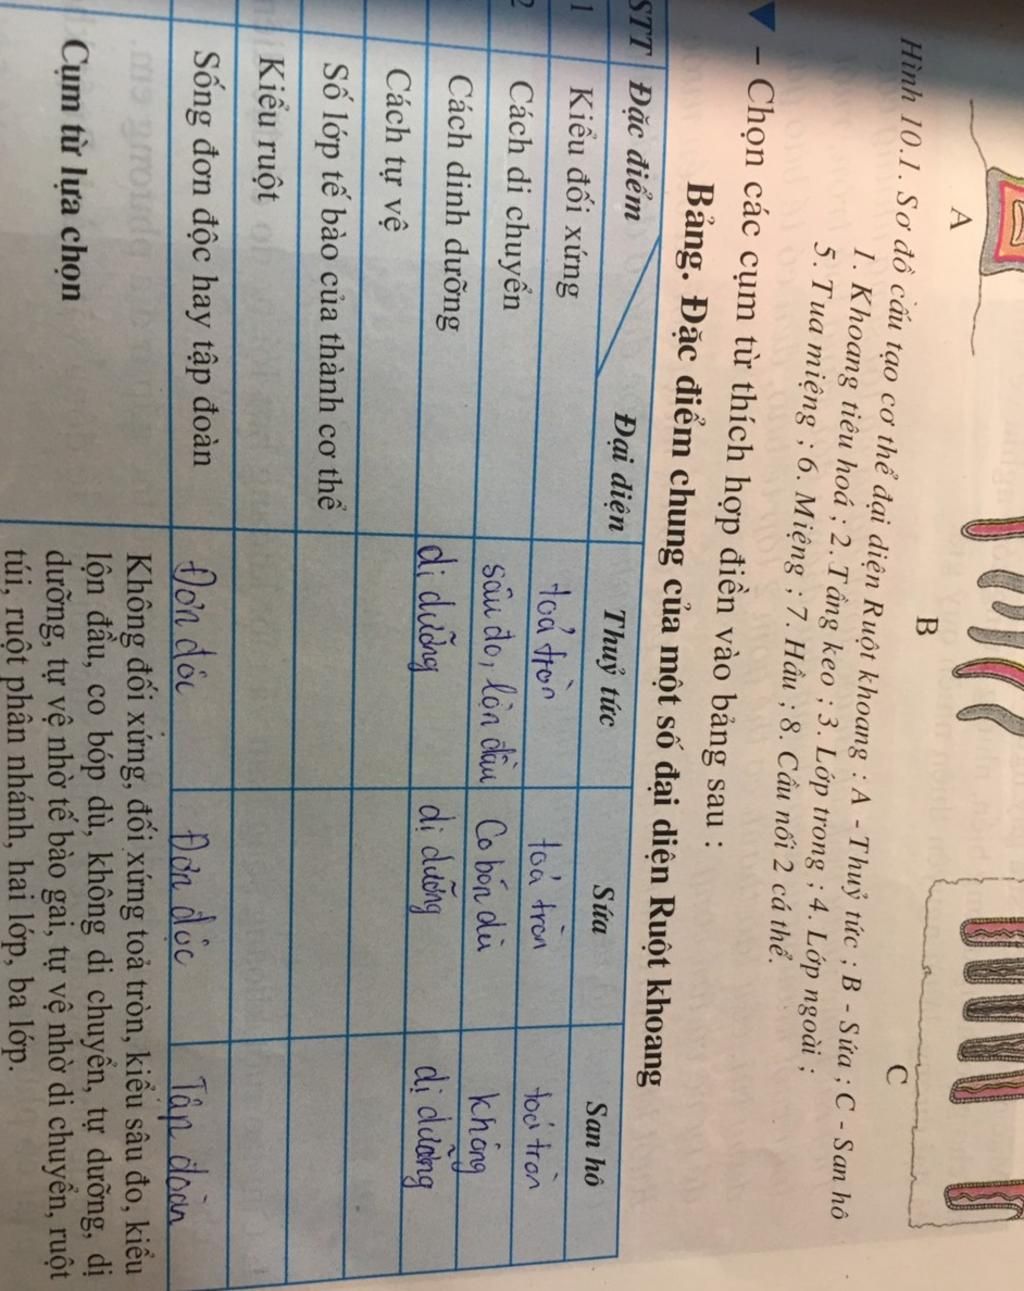 A
B
C
Hình 10.1. Sơ đồ cấu tạo cơ thể đại diện Ruột khoang : A - Thuỷ tức ; B - Sứa ; C - San hô
1. Khoang tiêu hoá ; 2. Tầng keo ; 3. Lớp trong ; 4. Lớp ngoài ;
5. Tua miệng ; 6. Miệng ; 7. Hầu ; 8. Cầu nối 2 cá thể.
▼ – Chọn các cụm từ thích hợp điền vào bảng sau :
Bảng. Đặc điểm chung của một số đại diện Ruột khoang
STT Đặc điểm Đại diện Thuỷ tức Sứa San hô
1 Kiểu đối xứng toả tròn toả tròn toả tròn
2 Cách di chuyển sâu đo, lộn đầu Co bóp dù không
Cách dinh dưỡng dị dưỡng dị dưỡng dị dưỡng
Cách tự vệ
Số lớp tế bào của thành cơ thể
Kiểu ruột
Sống đơn độc hay tập đoàn Đơn độc Đơn độc Tập đoàn
Cụm từ lựa chọn
Không đối xứng, đối xứng toả tròn, kiểu sâu đo, kiểu
lộn đầu, co bóp dù, không di chuyển, tự dưỡng, dị
dưỡng, tự vệ nhờ tế bào gai, tự vệ nhờ di chuyển, ruột
túi, ruột phân nhánh, hai lớp, ba lớp.